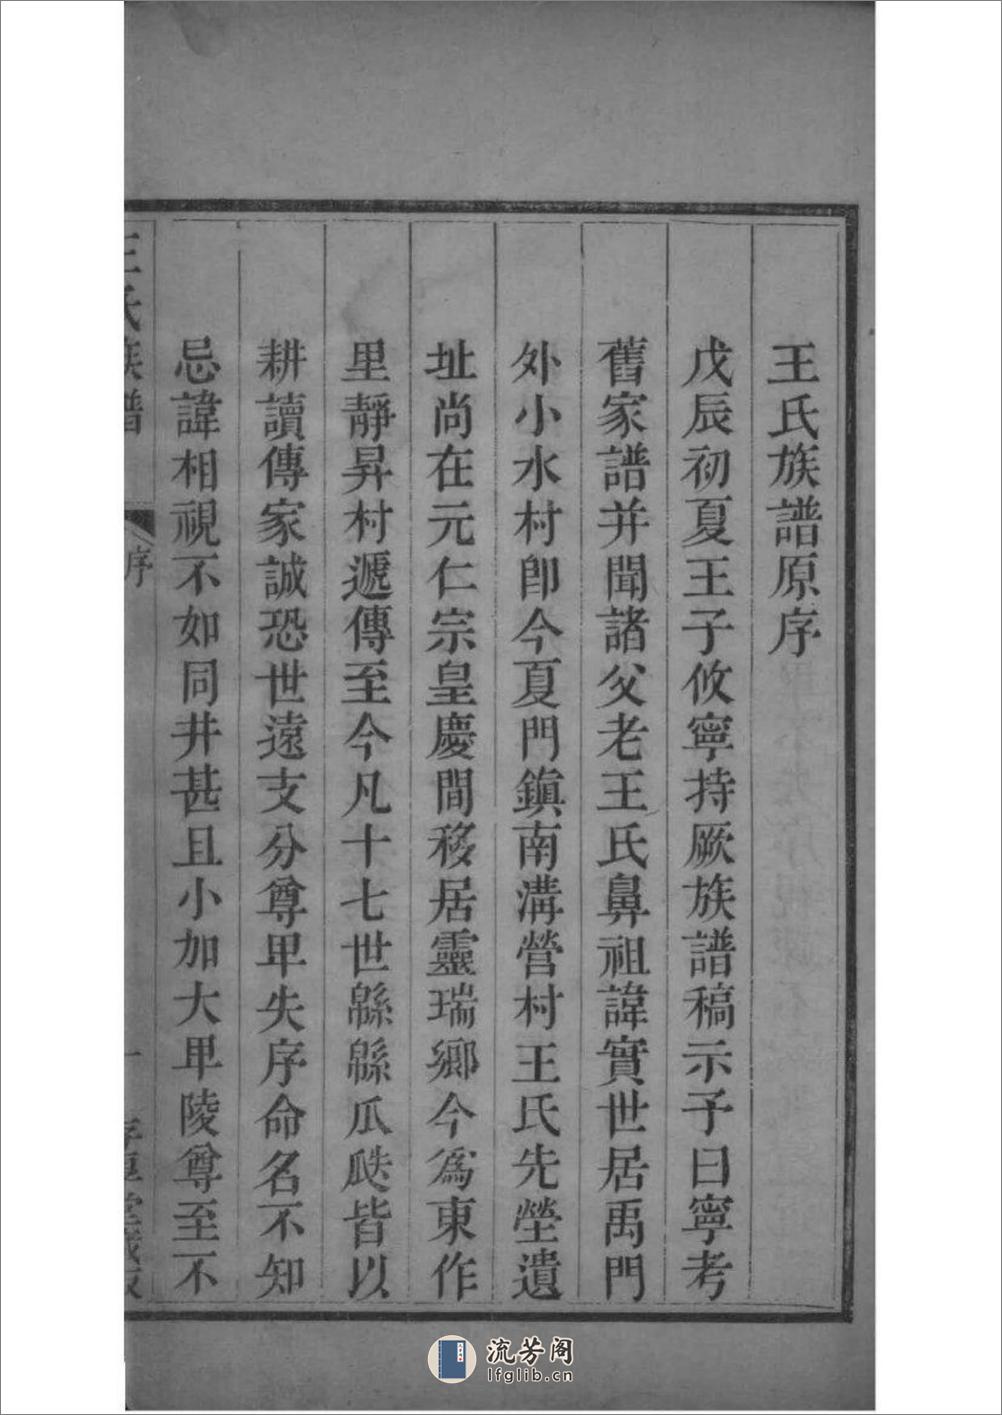 王氏族譜原序
戊辰初夏王子攸寧持厥族譜稿示予曰寧考
舊家譜并聞諸父老王氏鼻祖諱實世居禹門
外小水村卽今夏門鎮南溝營村王氏先塋遺
址尚在元仁宗皇慶間移居靈瑞鄉今爲東作
里靜昇村遞傳至今凡十七世緜緜瓜瓞皆以
耕讀傳家誠恐世遠支分尊卑失序命名不知
忌諱相視不如同井甚且小加大卑陵尊至不
王氏族譜
序
一
存厚堂藏板
流芳阁
lfglib.cn